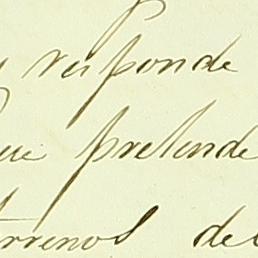 y responde
que pretende
terrenos de